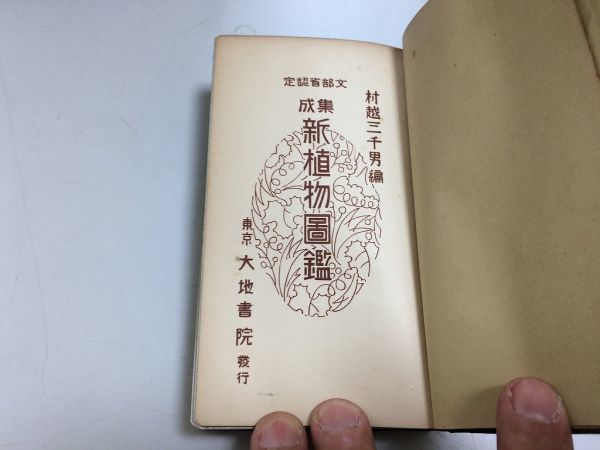 文部省認定
村越三千男編
集成
新植物圖鑑
東京 大地書院 發行